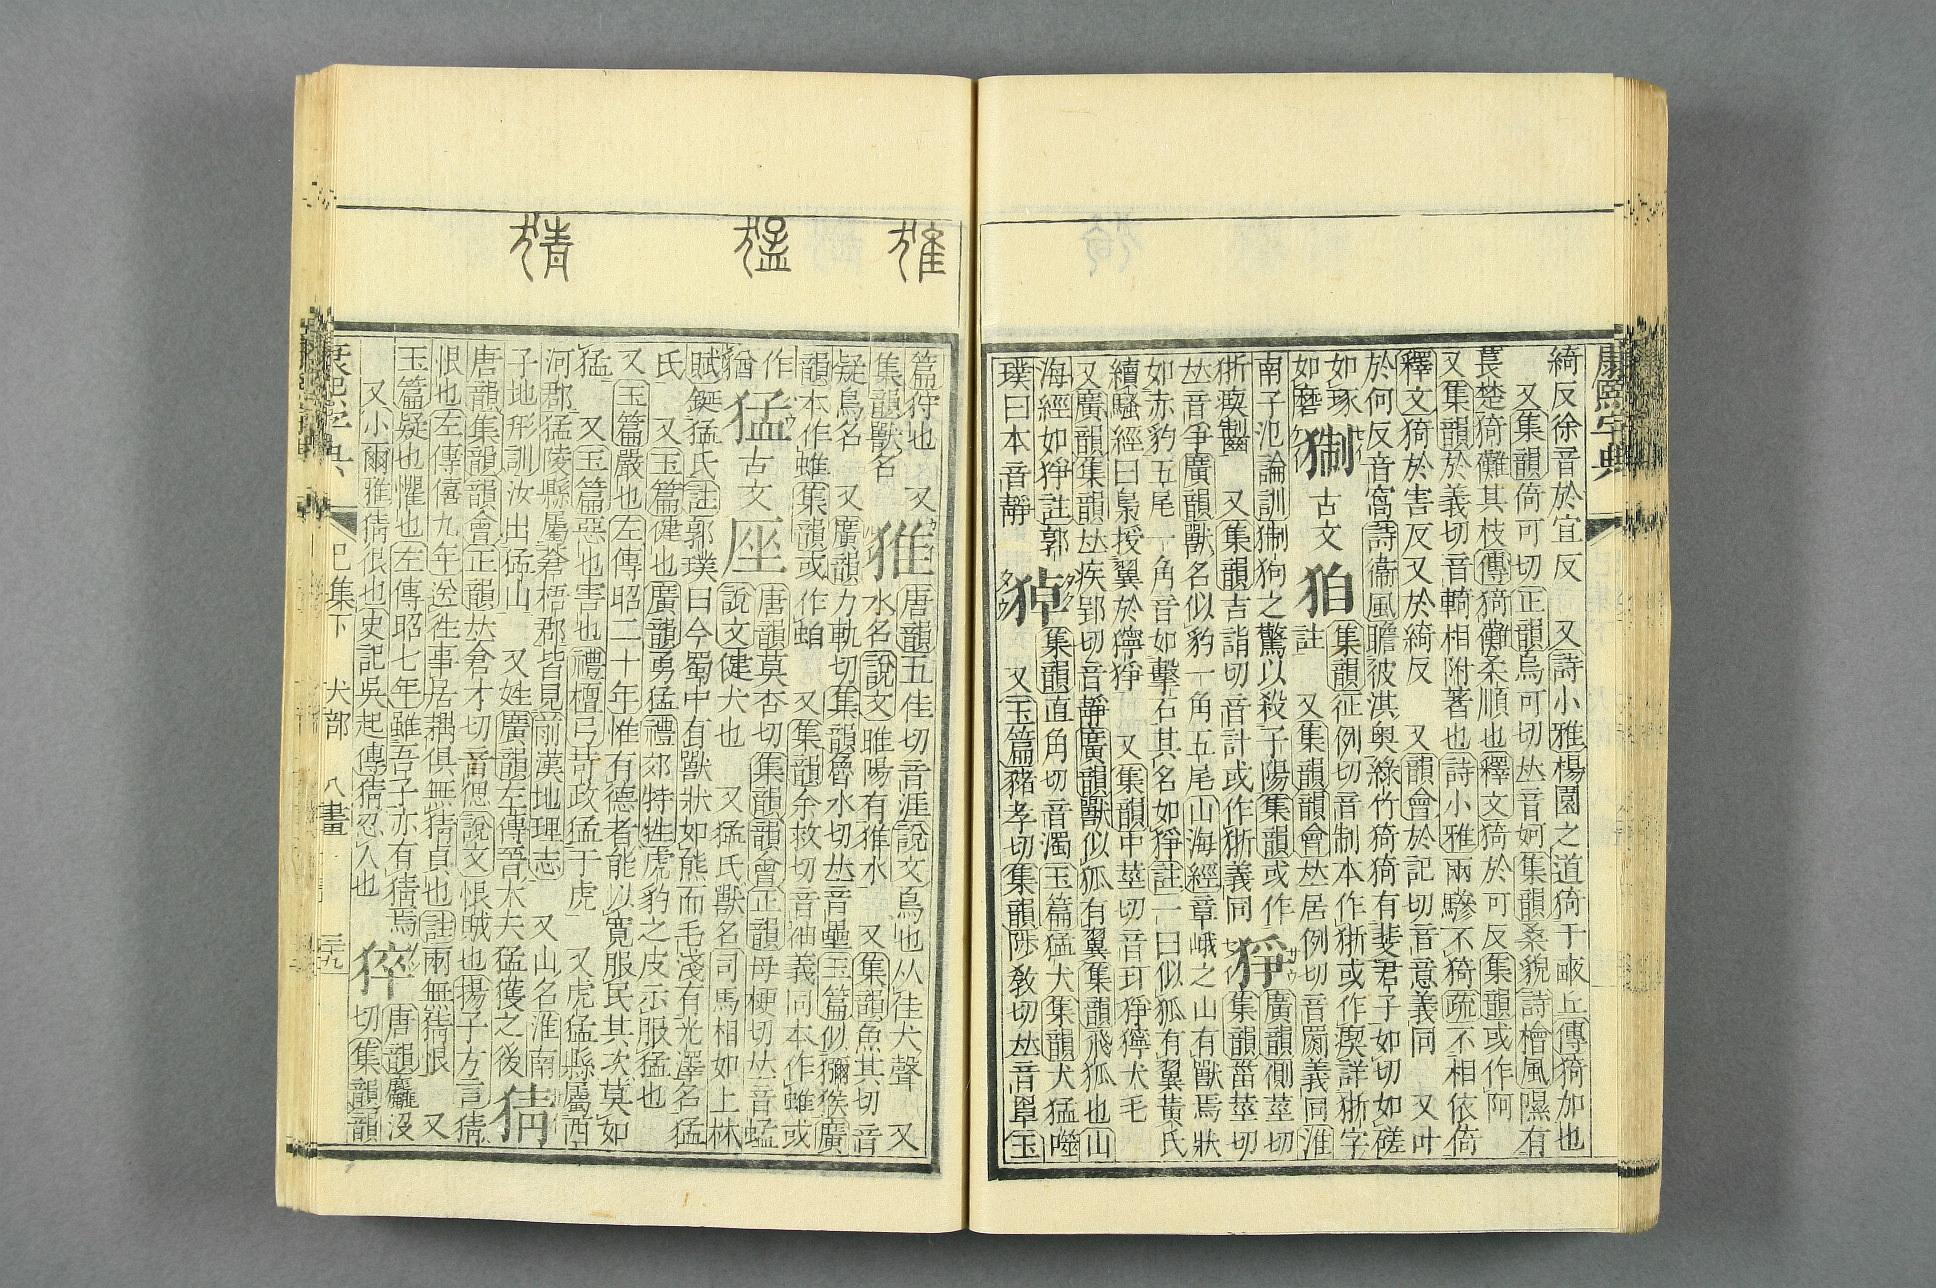 康熙字典
綺反徐音於宜反 又詩小雅楊園之道猗于畝丘傳猗加也
又集韻倚可切正韻烏可切𠀤音妸集韻桑貌詩檜風隰有
萇楚猗儺其枝傳猗儺柔順也釋文猗於可反集韻或作阿
又集韻於義切音輢相附著也詩小雅兩驂不猗疏不相依倚
釋文猗於害反又於綺反 又韻會於記切音意義同 又叶
於何反音窩詩衞風瞻彼淇奧綠竹猗猗有斐君子如切如磋
如琢如磨
猘 古文 狛 集韻征例切音制本作狾或作𤠙詳狾字
註 又集韻韻會𠀤居例切音罽義同淮
南子氾論訓猘狗之驚以殺子陽集韻或作
狾瘈㔎 又集韻吉詣切音計或作狾義同
猙 廣韻側莖切集韻甾莖切
𠀤音爭廣韻獸名似豹一角五尾山海經章峨之山有獸焉狀
如赤豹五尾一角音如擊石其名如猙註一曰似狐有翼黃氏
續騷經曰梟授翼於獰猙 又集韻中莖切音玎猙獰犬毛
又廣韻集韻𠀤疾郢切音靜廣韻獸似狐有翼集韻飛狐也山
海經如猙註郭璞曰本音靜
𤞻 集韻直角切音濁玉篇猛犬集韻犬猛噬
又玉篇豬孝切集韻陟敎切𠀤音罩玉
篇狩也 又集韻獸名
猚 唐韻五佳切音涯說文鳥也从隹犬聲 又
水名說文睢陽有猚水 又集韻魚其切音
疑鳥名 又廣韻力軌切集韻魯水切𠀤音壘玉篇似獼猴廣
韻本作蜼集韻或作蜼 又集韻余救切音狖義同本作蜼或
作㺠
猛 古文 𢉾 唐韻莫杏切集韻韻會正韻母梗切𠀤音蜢
說文健犬也 又猛氏獸名司馬相如上林
賦鋋猛氏註郭璞曰今蜀中有獸狀如熊而毛淺有光澤名猛
氏 又玉篇健也廣韻勇猛禮郊特牲虎豹之皮示服猛也
又玉篇嚴也左傳昭二十年惟有德者能以寬服民其次莫如
猛 又玉篇惡也害也禮檀弓苛政猛于虎 又虎猛縣屬西
河郡猛陵縣屬蒼梧郡皆見前漢地理志 又山名淮南
子地形訓汝出猛山 又姓廣韻左傳晉大夫猛獲之後
猜
唐韻集韻韻會正韻𠀤倉才切音偲說文恨賊也揚子方言猜
恨也左傳僖九年送往事居耦俱無猜貞也註兩無猜恨 又
玉篇疑也懼也左傳昭七年雖吾子亦有猜焉
又小爾雅猜很也史記吳起傳猜忍人也
猝 唐韻麤沒
切集韻韻
康熙字典
巳集下 犬部 八畫 三九
猚
猛
猜